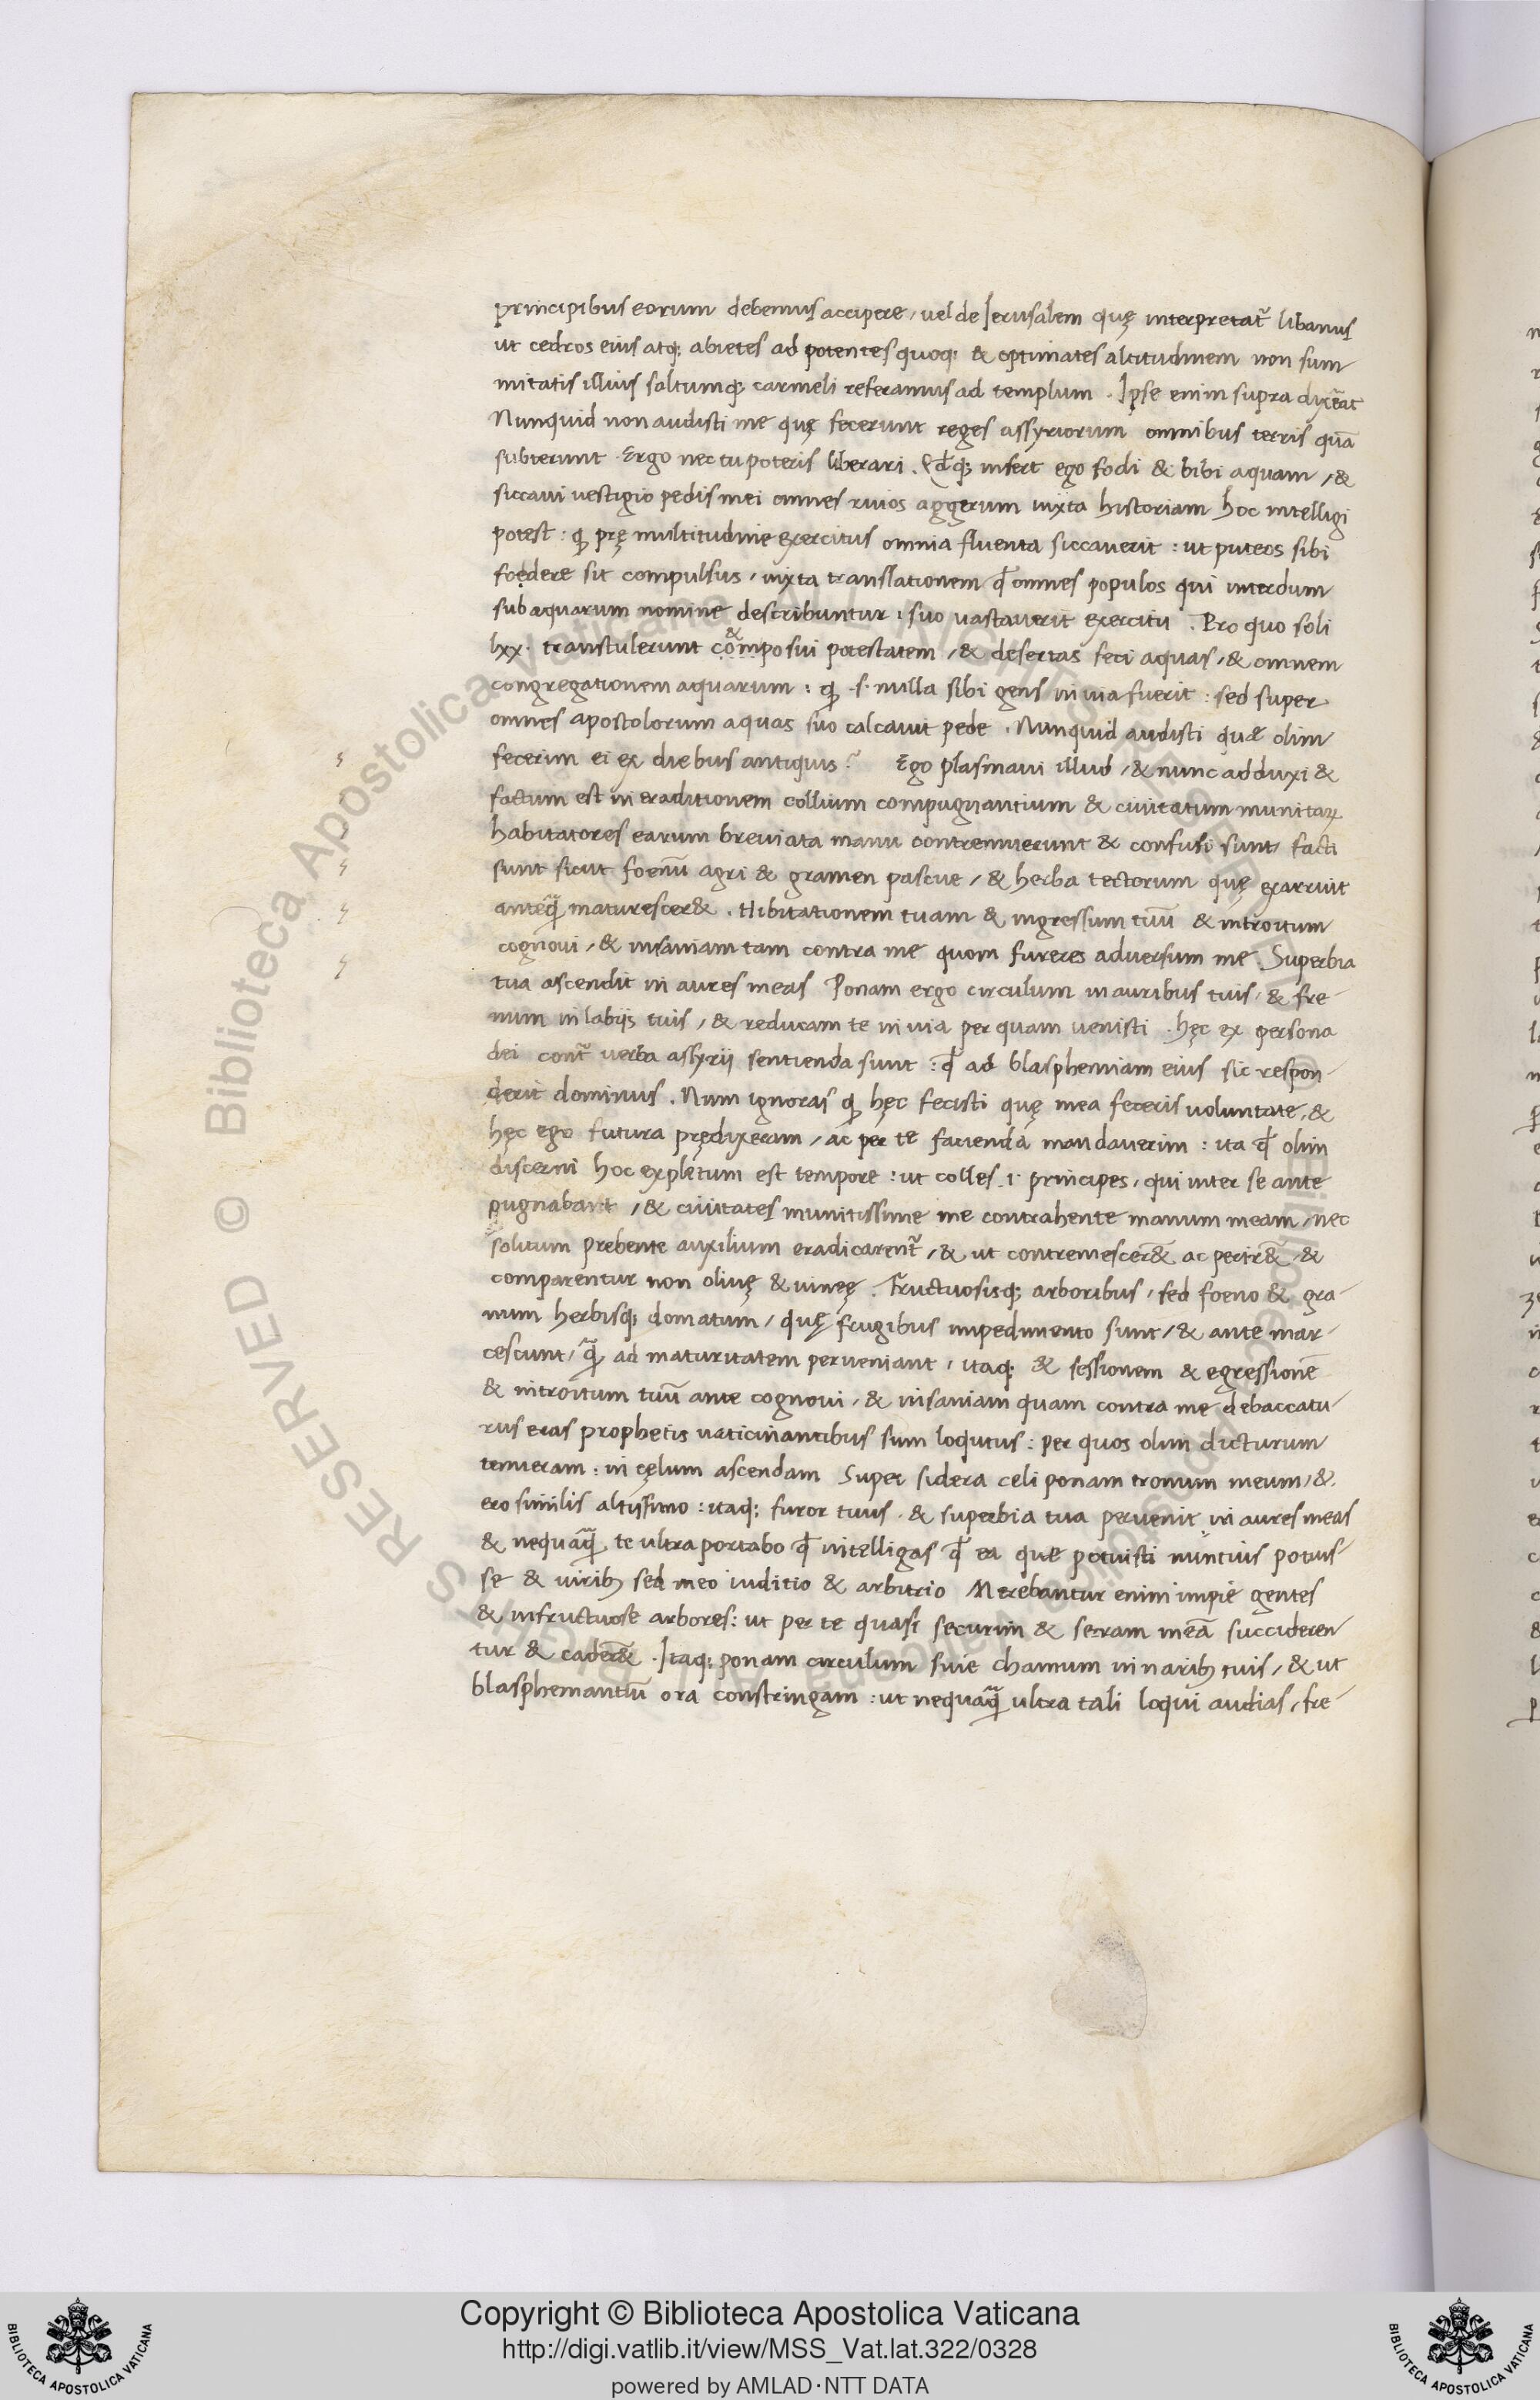 principibus eorum debemus accipere, uel de Jerusalem quę interpretat᷑ libanus
ut cedros eius atq; abietes ad potentes quoq; & optimates altitudinem non sum
mitatis illius saltumq; carmeli referamus ad templum . Ipse enim supra dixẽat
Nunquid non audisti me quę fecerunt reges assyriorum omnibus terris quã
subterunt . Ergo nec tu poteris liberari . Qđq; infert ego fodi & bibi aquam, &
siccaui uestigio pedis mei omnes riuos aggerum iuxta historiam hoc intelligi
potest : ꝙ prę multitudine exercitus omnia fluenta siccauerit : ut puteos sibi
foędere sit compulsus, iuxta translationem qđ omnes populos qui interdum
sub aquarum nomine describuntur : suo uastauerit exercitu . Pro quo soli
lxx. transtulerunt & composui potestatem, & desertas feci aquas, & omnem
congregationem aquarum : ꝙ .s. nulla sibi gens inuia fuerit : sed super
omnes apostolorum aquas suo calcauit pede . Nunquid audisti quæ olim
fecerim ei ex diebus antiquis ? Ego plasmaui illud, & nunc adduxi &
factum est in eraditionem collium compugnantium & ciuitatum munitaꝝ
habitatores earum breuiata manu contremuerunt & confusi sunt, facti
sunt sicut foenũ agri & gramen pascue, & herba tectorum quę exarruit
anteꝙ̃ maturescer& . Hibitationem tuam & ingressum tuũ & introitum
cognoui, & insaniam tam contra me quom fureres aduersum me . Superbia
tua ascendit in aures meas Ponam ergo circulum in auribus tuis, & fre-
num in labijs tuis, & reducam te in uia per quam uenisti . hęc ex persona
dei cont᷑ uerba assyrij sentienda sunt : qđ ad blasphemiam eius sic respon-
derit dominus . Num ignoras ꝙ hęc fecisti quę mea feceris uoluntate, &
hęc ego futura prędixeram, ac per te facienda mandauerim : ita qđ olim
discerni hoc expletum est tempore : ut colles .i. principes, qui inter se ante
pugnabant, & ciuitates munitissime me contrahente manum meam, nec
solitum prebente auxilium eradicarent᷑, & ut contremescer&̃ ac perir&̃, &
comparentur non oliuę & uineę . Fructuosisq; arboribus, sed foeno & gra-
mum herbisq; domatum, quę frugibus impedimento sunt, & ante mar-
cescunt, ꝙ̃ ad maturitatem perueniant, itaq; & sessionem & egressionẽ
& introitum tuũ ante cognoui, & insaniam quam contra me debaccatu-
rus eras prophetis uaticinantibus sum loqutus : per quos olim dicturum
temueram : in cęlum ascendam Super sidera celi ponam tronum meum, &
ero similis altissimo : itaq; furor tuus . & superbia tua peruenit in aures meas
& nequaꝙ̃ te ultra portabo qđ intelligas qđ ea que potuisti nuntius potuis-
se & uirib; sed meo iuditio & arbitrio Merebantur enim impie gentes
& infructuose arbores : ut per te quasi securim & serram meã succideren
tur & cader&̃ . Itaq; ponam circulum siue chamum in narib; tuis, & ut
blasphemantiũ ora constringam : ut nequaꝙ̃ ultra tali loqui audias, fre-
Copyright © Biblioteca Apostolica Vaticana
http://digi.vatlib.it/view/MSS_Vat.lat.322/0328
powered by AMLAD·NTT DATA
BIBLIOTECA APOSTOLICA VATICANA
BIBLIOTECA APOSTOLICA VATICANA